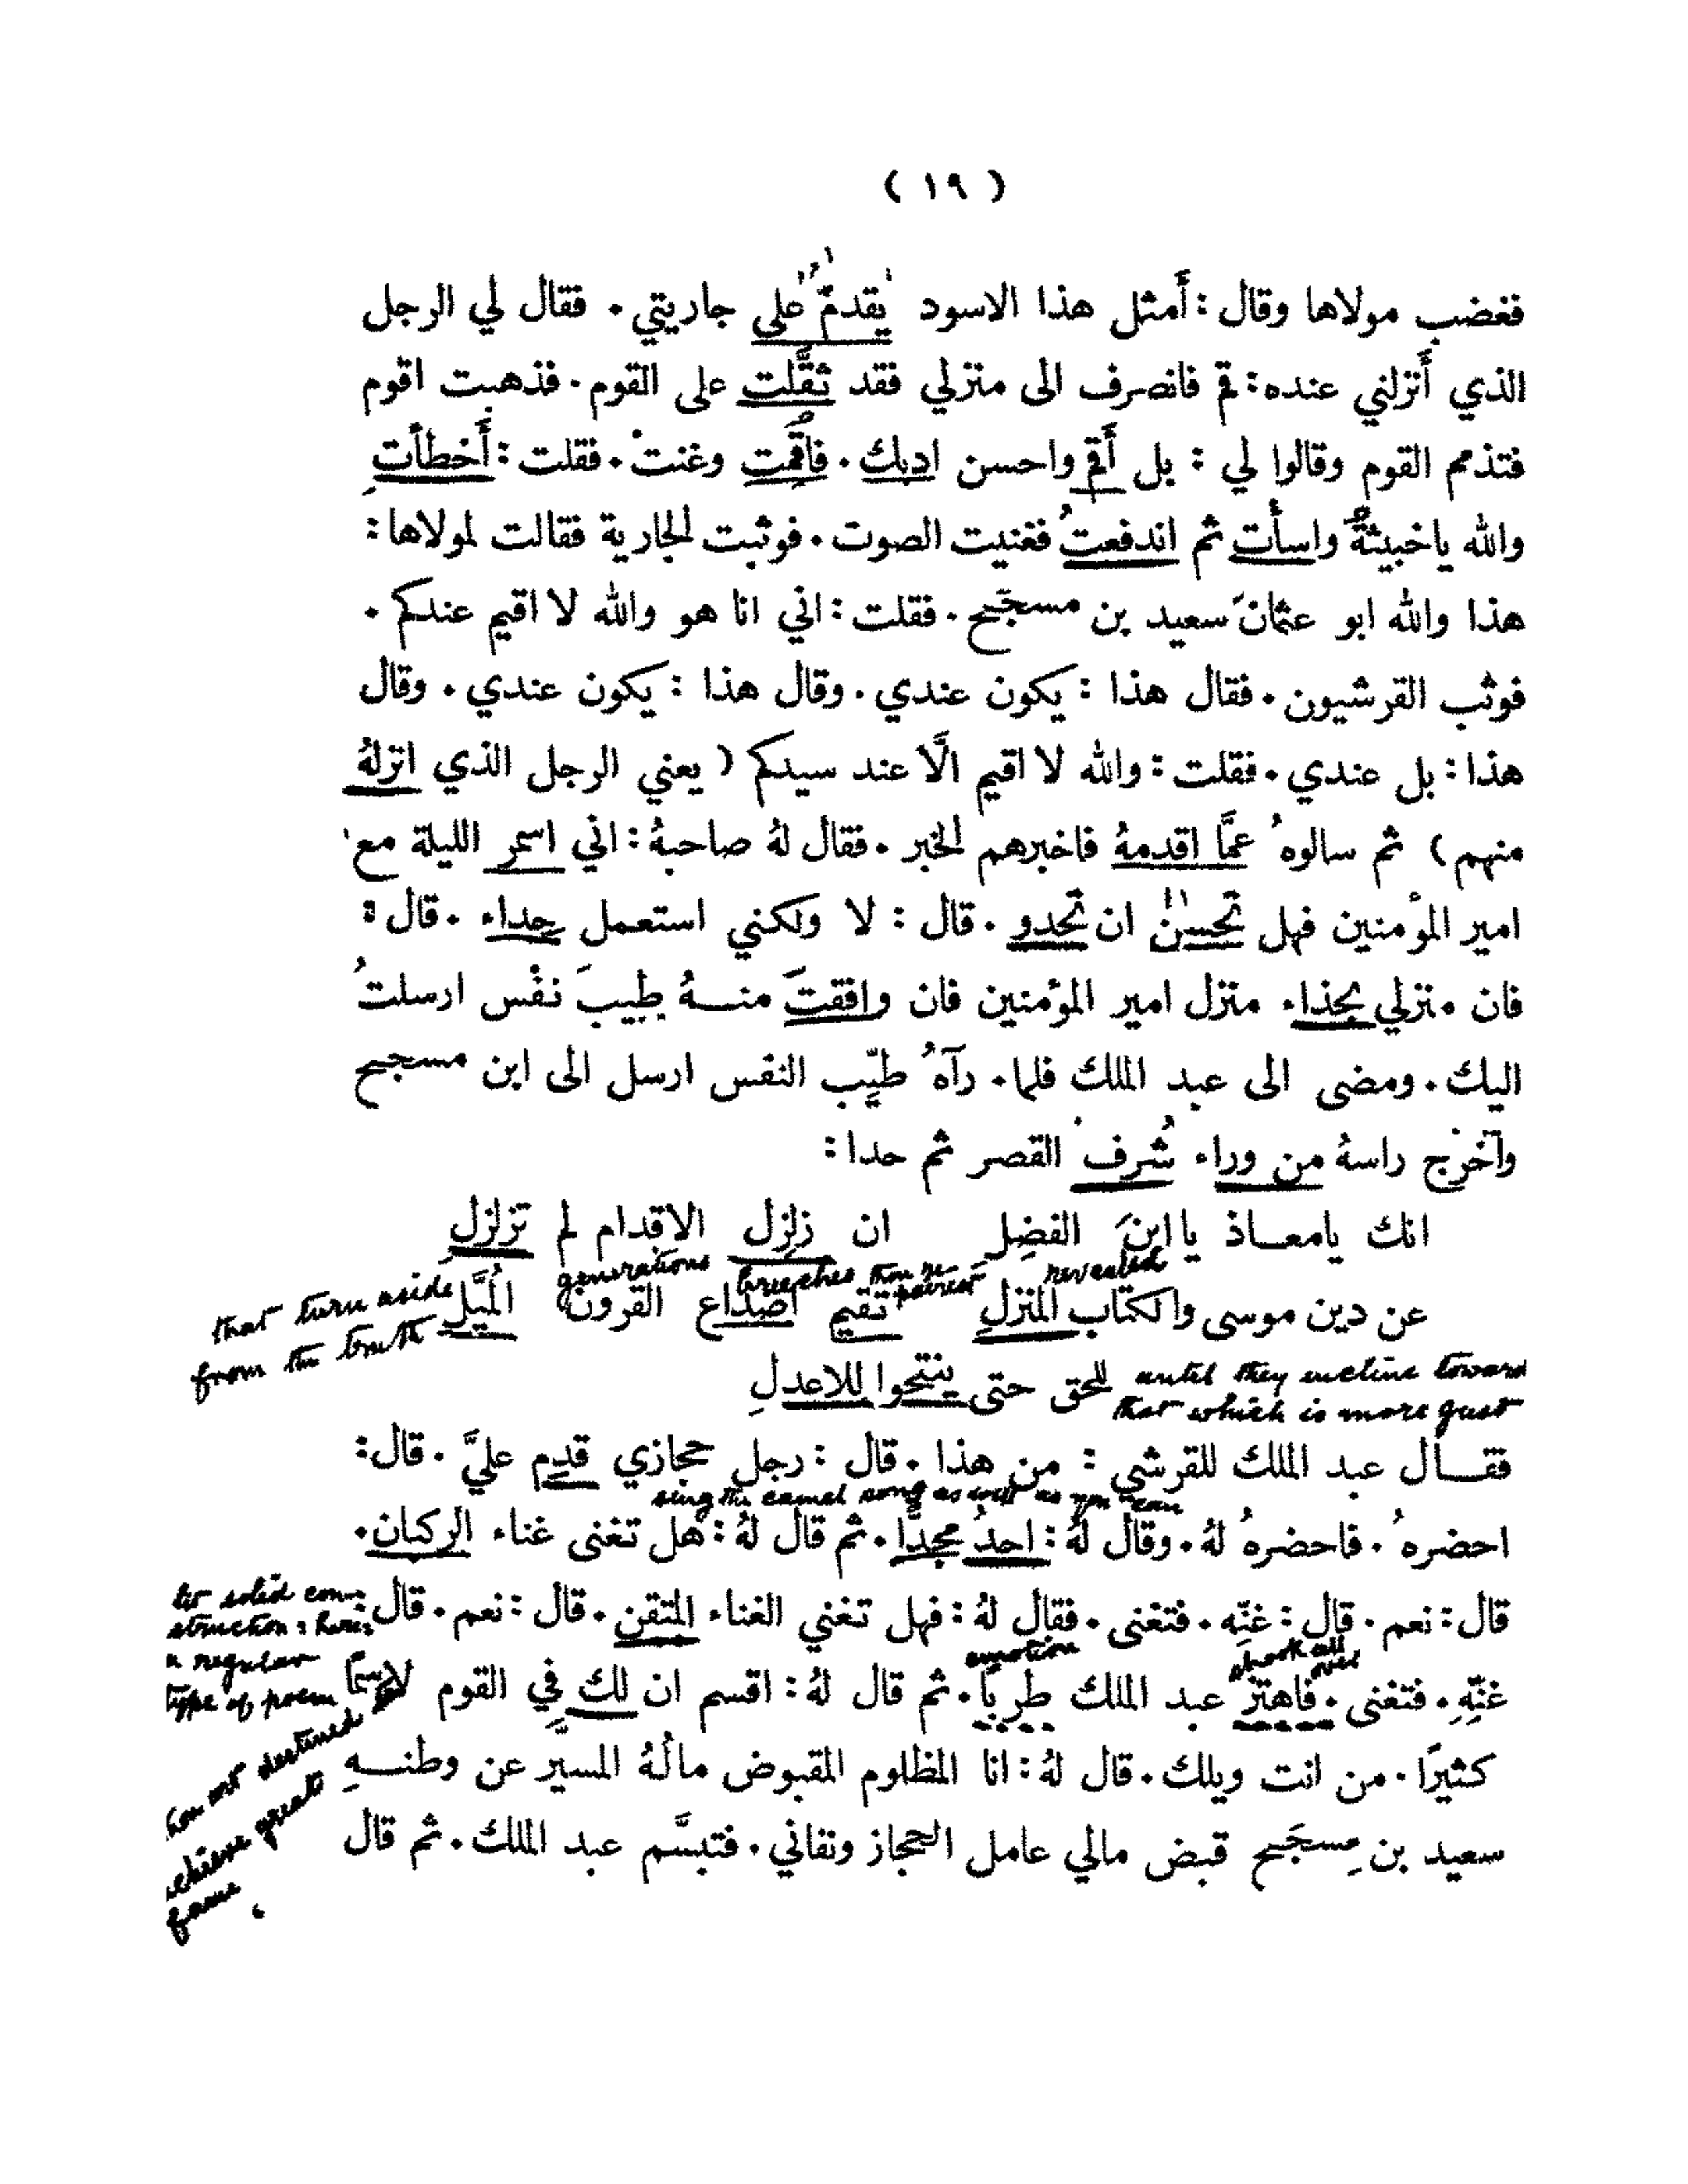 ( ١٩ )
فغضب مولاها وقال : أَمثل هذا الاسود يقدمُ على جاريتي . فقال لي الرجل
الذي أَنزلني عنده : قم فانصرف الى منزلي فقد ثقَّلت على القوم . فذهبت اقوم
فتذمم القوم وقالوا لي : بل أَقم واحسن ادبك . فاقمت وغنتْ . فقلت : أَخطأتِ
والله ياخبيثة واسأت ثم اندفعتُ فغنيت الصوت . فوثبت الجارية فقالت لمولاها :
هذا والله ابو عثمانَ سعيد بن مسجَح . فقلت : اني انا هو والله لا اقيم عندكم .
فوثب القرشيون . فقال هذا : يكون عندي . وقال هذا : يكون عندي . وقال
هذا : بل عندي . فقلت : والله لا اقيم الَّا عند سيدكم ( يعني الرجل الذي انزلهُ
منهم ) ثم سالوهُ عمَّا اقدمهُ فاخبرهم الخبر . فقال لهُ صاحبهُ : اني اسمر الليلة مع
امير المؤمنين فهل تحسنُ ان تحدو . قال : لا ولكني استعمل حداء . قال :
فان منزلي بحذاء منزل امير المؤمنين فان وافقتَ منـهُ طيبَ نفْس ارسلتُ
اليك . ومضى الى عبد الملك فلما . رآهُ طيِّب النفس ارسل الى ابن مسجح
وآخرْج راسهُ من وراء شُرف القصر ثم حدا :
انك يامعـاذ يا ابنَ الفضلِ ان زلزل الاقدام لم تزلزلِ
generations breeches thou re-paires t revealed
عن دين موسى والكتاب المنزلِ تقيم اصداع القرون المُيَّلِ
that turn aside
from the truth
للحق حتى ينتحوا للاعدلِ
until they incline toward
that which is more just
فقـال عبد الملك للقرشي : من هذا . قال : رجل حجازي قدم عليَّ . قال :
sing the camel song as well as you can
احضرهُ . فاحضرهُ لهُ . وقال لهُ : احدُ مجدًّا . ثم قال لهُ : هل تغنى غناء الركبان .
قال : نعم . قال : غنّهِ . فتغنى . فقال لهُ : فهل تغني الغناء المتقن . قال : نعم . قال :
lit solid con-
struction : here:
a regular
type of poem
emotion
shook all
over
غنّهِ . فتغنى . فاهتز عبد الملك طربًا . ثم قال لهُ : اقسم ان لك في القوم لاسمًا
كثيرًا . من انت ويلك . قال لهُ : انا المظلوم المقبوض مالُهُ المسيَّر عن وطنـهِ
سعيد بن مِسجَح قبض مالي عامل الحجاز ونفاني . فتبسَّم عبد الملك . ثم قال
destined
achieve great
fame